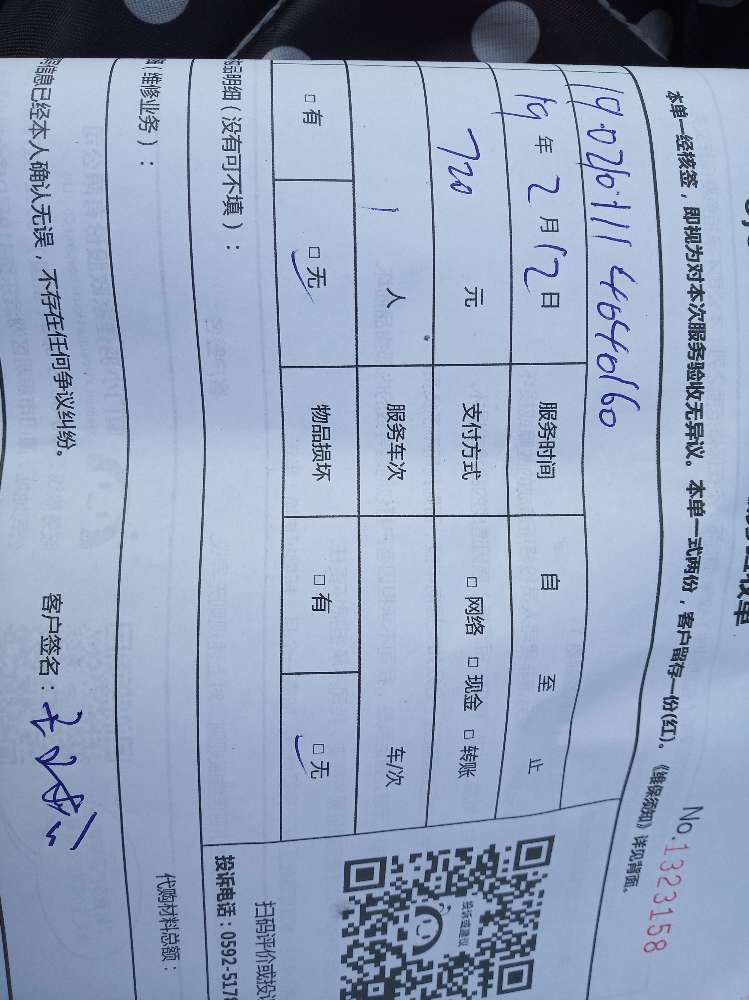 收单
No.1323158
本单一经核签，即视为对本次服务验收无异议。本单一式两份，客户留存一份(红)。《维保须知》详见背面。
19年2月12日 服务时间 自 至 止
720 元 支付方式 □网络 □现金 □转账
1 人 服务车次 车/次
□有 □无 物品损坏 □有 □无
品明细（没有可不填）：
（维修业务）：
代购材料总额：
投诉或建议
扫码评价或投
投诉电话：0592-5178
信息已经本人确认无误，不存在任何争议纠纷。
客户签名：